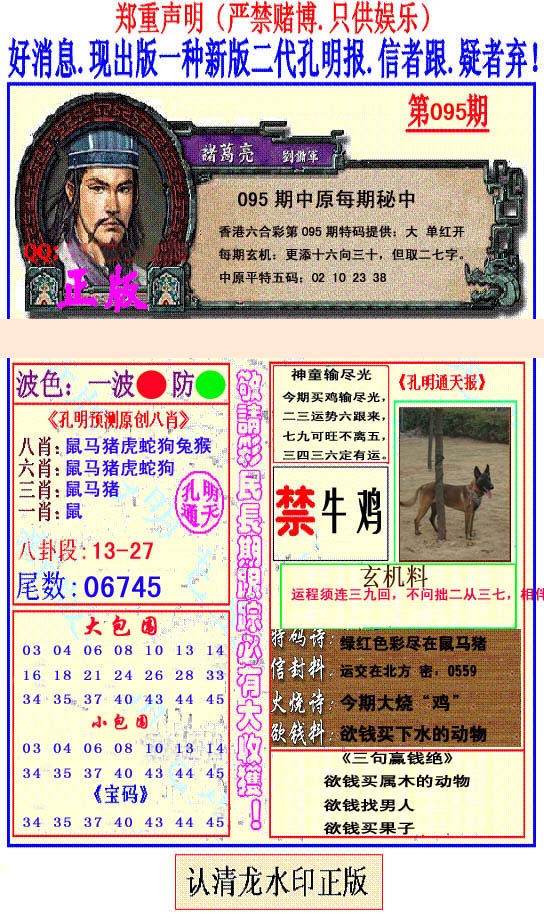 郑重声明（严禁赌博.只供娱乐）
好消息.现出版一种新版二代孔明报.信者跟.疑者弃！
第095期
諸葛亮 劉備軍
095 期中原每期秘中
香港六合彩第 095 期特码提供：大 单红开
每期玄机：更添十六向三十，但取二七字。
中原平特五码：02 10 23 38
QQ:
正版
波色：一波 防
《孔明预测原创八肖》
八肖:鼠马猪虎蛇狗兔猴
六肖:鼠马猪虎蛇狗
三肖:鼠马猪
一肖:鼠
孔明
通天
八卦段:13-27
尾数:06745
大包围
03 04 06 08 10 13 14
16 18 21 24 26 28 33
34 35 37 40 43 44 45
小包围
03 04 06 08 10 13 14
34 35 37 40 43 44 45
《宝码》
34 35 37 40 43 44 45
敬請彩民長期跟踪必有大收獲！
神童输尽光
今期买鸡输尽光，
二三运势六跟来，
七九可旺不离五，
三四三六定有运。
《孔明通天报》
禁牛鸡
玄机料
运程须连三九回，不问拙二从三七，相伴
特码诗:绿红色彩尽在鼠马猪
信封料:运交在北方 密：0559
火烧诗:今期大烧“鸡”
欲钱料:欲钱买下水的动物
《三句赢钱绝》
欲钱买属木的动物
欲钱找男人
欲钱买果子
认清龙水印正版